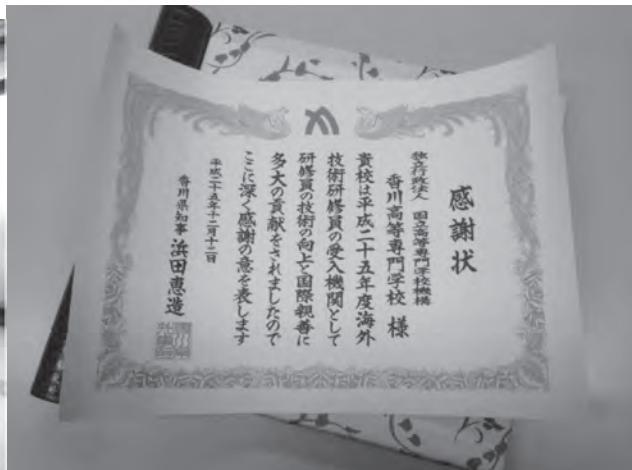 感謝状
独立行政法人 国立高等専門学校機構
香川高等専門学校 様
貴校は平成二十五年度海外
技術研修員の受入機関として
研修員の技術の向上と国際親善に
多大の貢献をされましたので
ここに深く感謝の意を表します
平成二十五年十二月十二日
香川県知事 浜田恵造